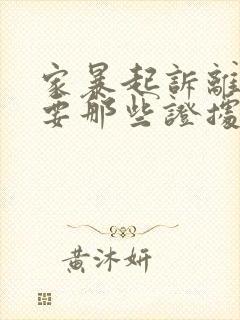 家暴起訴離
要那些證據
黃沐妍